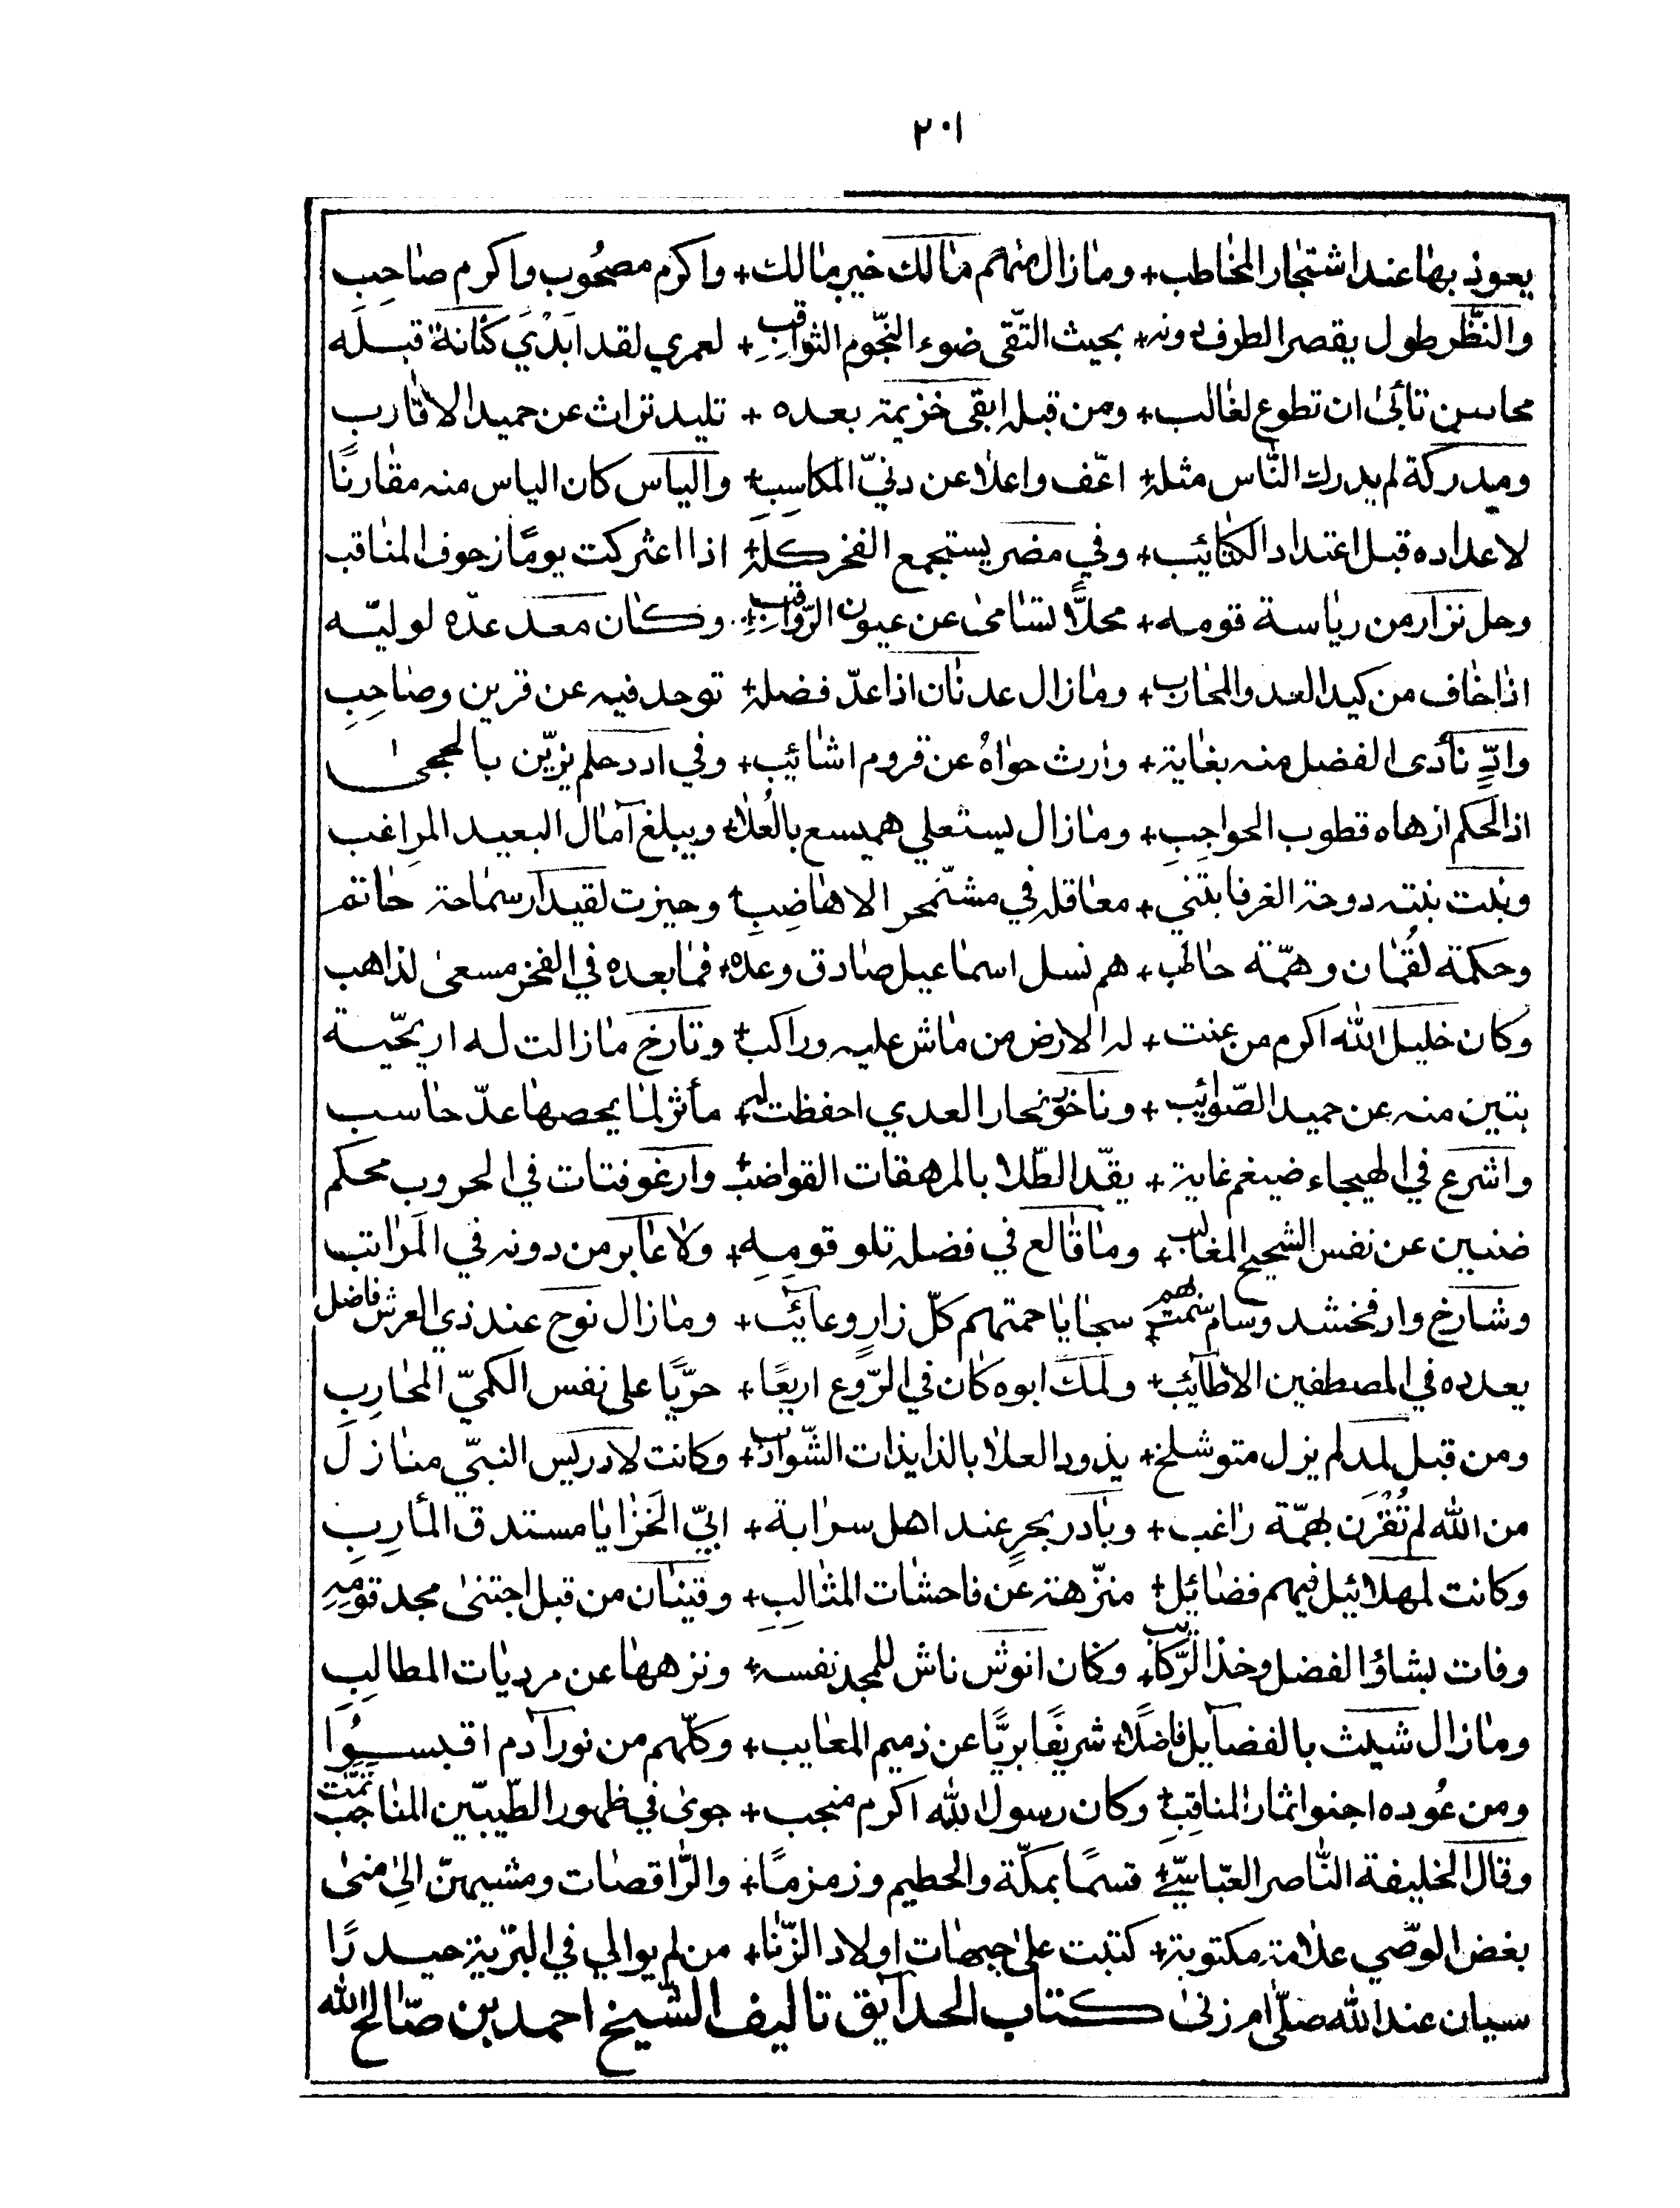 ٢٠١
يعوذ بها عند اشتجار المخاطب + وما زال منهم مالك خير مالك + واكرم مصحُوب واكرم صاحِبِ
والنّضر طول يقصر الطرف دونه + بحيث التقى ضوء النّجوم الثواقِبِ + لعمري لقد ابَدْيَ كنانة قبله
محاسن تأبىٰ ان تطوع لغالب + ومن قبله ابقى خزيمة بعده + تليد تراث عن حميد الاقارب
ومدركة لم يدرك النّاس مثله + اعّف واعلا عن دنيّ المكاسِبِ + والياس كان الياس منه مقارنًا
لاعداده قبل اعتداد الكتائب + وفي مضر يستجمع الفخر كلّه + اذا اعتركت يومًا زحوف المناقب
وحل نزار من رياسة قومه + محلًّا تسامىٰ عن عيون الرّواقب + وكان معد عدّه لوليّه
اذا خاف من كيد العدو المحارب + وما زال عدنان اذا عدّ فضله + توحد فيه عن قرين وصاحِبِ
وادٍّ تأدى الفضل منه بغاية + وارث حواهُ عن قروم اشائيب + وفي ادد حلم تزيّن بالحجىٰ
اذا الحكم ازهاه قطوب الحواجِبِ + وما زال يستعلي هميسع بالعُلا + ويبلغ آمال البعيد المراغب
ونبت بنته دوحة العز فابتني + معاقله في مشتمخر الاهاضِبِ + وحيزت لقيدار سماحة حاتم
وحكمة لقُمان وهمّة حاطب + هم نسل اسماعيل صادق وعده + فما بعده في الفخر مسعىٰ لذاهب
وكان خليل الله اكرم من عنت + له الارض من ماش عليه وراكب + وتارخ ما زالت له اريحّية
بتين منه عن حميد الضّوائب + وناخور نحار العدي احفظت له + مأثر لما يحصها عدّ حاسب
واشرع في الهيجاء ضيغم غاية + يقدّ الطّلا بالمرهفات القواضب + وارغو فتات في الحروب محكم
ضنين عن نفس الشحيح المغالب + وما قالع في فضله تلو قومِهِ + ولا عابر من دونه في المَراتب
وشارخ وارفخشد وسام سّمت هم + سجايا حمتهم كلّ زارٍ وعائب + وما زال نوح عند ذي العرش فاضل
يعدده في المصطفين الاطائب + ولمك ابوه كان في الرّوع اربعًا + حرّيًا على نفس الكميّ المحارب
ومن قبل لمد لم يزل متوشلخ + يذود العلا بالذايذات الشّوازب + وكانت لادريس النبيّ منازلَ
من الله لم تُقْرَن بهمّة راغب + وبادر بحرٍ عند اهل سرابة + ابيّ الخَزايا مستدق المأربِ
وكانت لمهلائيل فيهم فضائل + منزّهة عن فاحشات المثالبِ + وقينان من قبل اجتنىٰ مجد قومِهِ
وفات بشاؤ الفضل وخذ الرّكائب + وكان انوش ناش للمجد نفسه + ونزهها عن مرديات المطالبِ
وما زال شيث بالفضآيل فاضلًا + شريفًا بريًّا عن ذميم المعايب + وكلّهم من نور آدم اقبسُوا
ومن عُوده اجنوا ثمار المناقِبِ + وكان رسول الله اكرم منجب + جوىٰ في ظهور الطّيبّين المناجب تمّت
وقال الخليفة النّاصر العبّاسّي + قسمًا بمكّة والحطيم وزمزمًا + والرّاقصات ومشيهنّ الىٰ منىٰ
بغض الوصّي علامة مكتوبة + كتبت علىٰ جبهات اولاد الزّنا + من لم يوالي في البّرية حيدرًا
سيان عند الله صلّٰى ام زنىٰ كتاب الحدآيق تاليف الشّيخ احمد بن صّالح الله